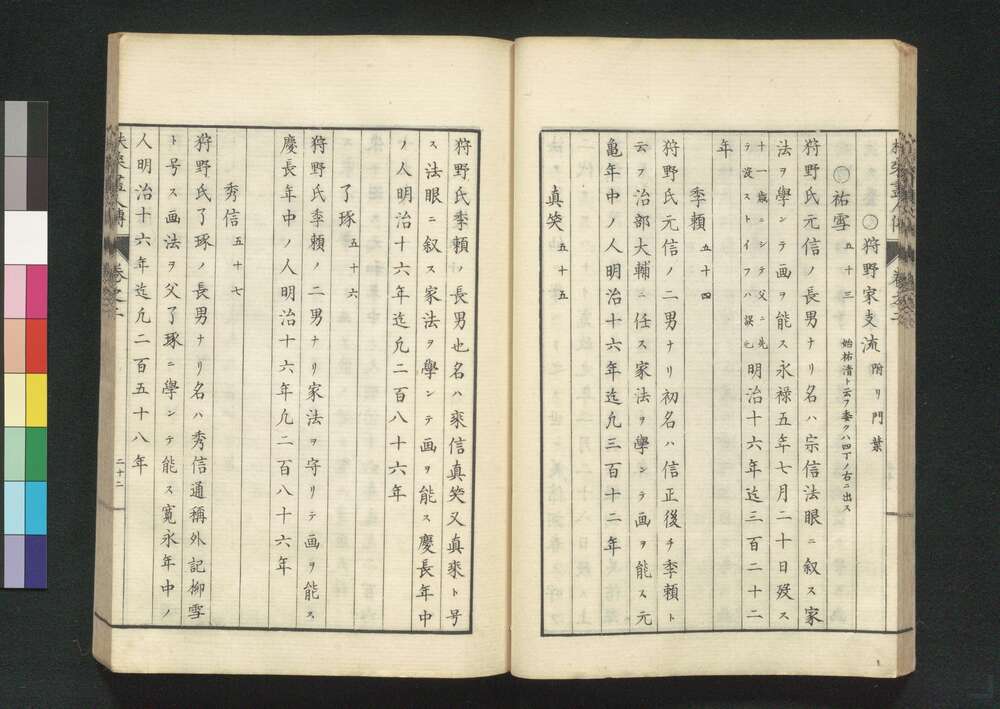 〇狩野家支流 附リ門葉
〇祐雪 五十三 始祐清ト云フ委クハ四丁ノ右ニ出ス
狩野氏元信ノ長男ナリ名ハ宗信法眼ニ叙ス家
法ヲ學ンテ画ヲ能ス永禄五年七月二十日歿ス
十一歳ニシテ父ニ先
テ歿ストイフハ誤也
明治十六年迄三百二十二
年
季頼 五十四
狩野氏元信ノ二男ナリ初名ハ信正後チ季頼ト
云フ治部大輔ニ任ス家法ヲ學ンテ画ヲ能ス元
亀年中ノ人明治十六年迄凢三百十二年
真笑 五十五
狩野氏季頼ノ長男也名ハ來信真笑又真來ト号
ス法眼ニ叙ス家法ヲ學ンテ画ヲ能ス慶長年中
ノ人明治十六年迄凢二百八十六年
了琢 五十六
狩野氏季頼ノ二男ナリ家法ヲ守リテ画ヲ能ス
慶長年中ノ人明治十六年凢二百八十六年
秀信 五十七
狩野氏了琢ノ長男ナリ名ハ秀信通稱外記柳雪
ト号ス画法ヲ父了琢ニ學ンテ能ス寛永年中ノ
人明治十六年迄凢二百五十八年
卷之二
二十二